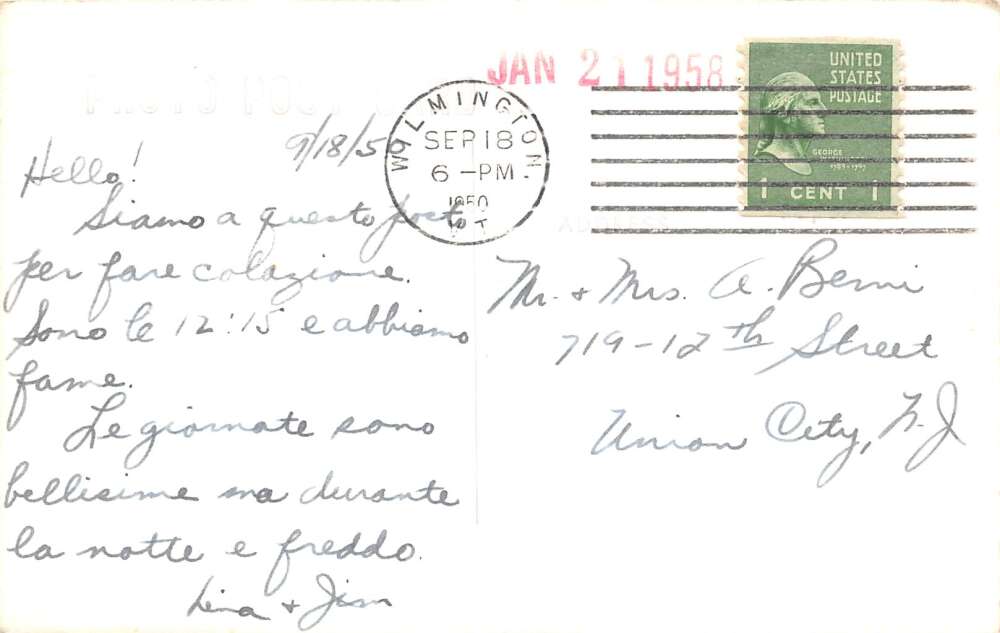 JAN 21 1958
WILMINGTON
SEP 18
6 -PM
1950
VT.
UNITED
STATES
POSTAGE
GEORGE
1 CENT 1
9/18/5
Hello!
Siamo a questo posto
per fare colazione.
Sono le 12:15 e abbiamo
fame.
Le giornate sono
bellisime ma durante
la notte e freddo.
Lina + Jim
Mr. + Mrs. A. Berni
719-12th Street
Union City, N.J